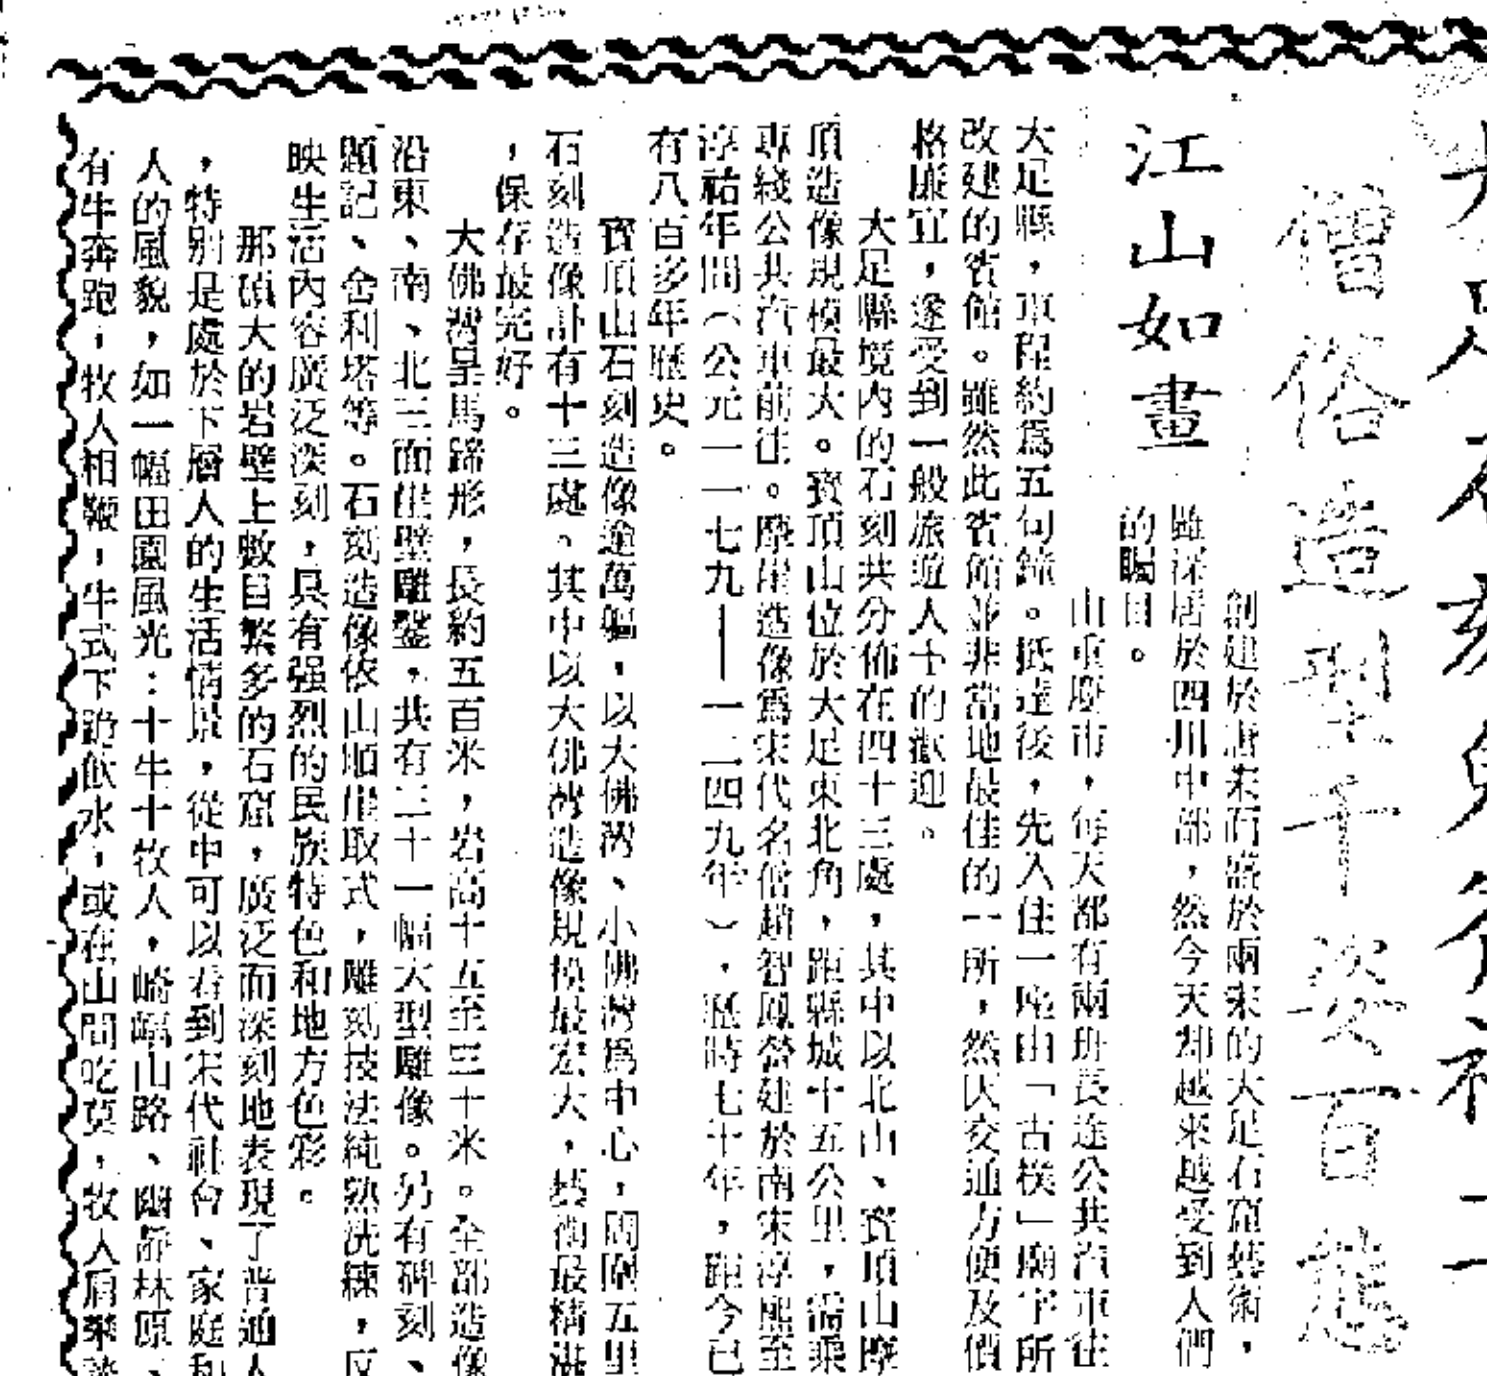 僧俗造型千姿百態
江山如畫
創建於唐末而盛於兩宋的大足石窟藝術，
雖深居於四川中部，然今天却越來越受到人們
的矚目。
由重慶市，每天都有兩班長途公共汽車往
大足縣，車程約爲五句鐘。抵達後，先入住一座由「古樸」廟宇所
改建的賓館。雖然此賓館並非當地最佳的一所，然因交通方便及價
格廉宜，遂受到一般旅遊人士的歡迎。
大足縣境內的石刻共分佈在四十三處，其中以北山、寶頂山摩
頂造像規模最大。寶頂山位於大足東北角，距縣城十五公里，需乘
專綫公共汽車前往。摩崖造像爲宋代名僧趙智鳳營建於南宋淳熙至
淳祐年間（公元一一七九——一二四九年），歷時七十年，距今已
有八百多年歷史。
寶頂山石刻造像逾萬軀，以大佛灣、小佛灣爲中心，周圍五里
石刻造像計有十三處。其中以大佛灣造像規模最宏大，藝術最精湛
，保存最完好。
大佛灣呈馬蹄形，長約五百米，岩高十五至三十米。全部造像
沿東、南、北三面崖壁雕鑿，共有三十一幅大型雕像。另有碑刻、
題記、舍利塔等。石刻造像依山順崖取式，雕刻技法純熟洗練，反
映生活內容廣泛深刻，具有强烈的民族特色和地方色彩。
那碩大的岩壁上數目繁多的石窟，廣泛而深刻地表現了普通人
，特別是處於下層人的生活情景，從中可以看到宋代社會、家庭和
人的風貌，如一幅田園風光：十牛十牧人，崎嶇山路、幽靜林原、
有牛奔跑，牧人相鞭，牛式下蹄飲水，或在山間吃草，牧人肩